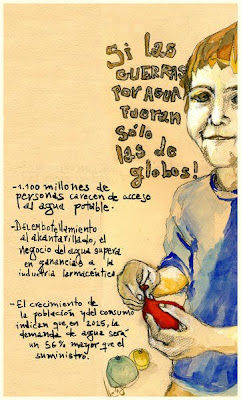 Si las
GUERRAS
POR AGUA
FUERAN
Sólo
las de
globos!
-1.100 millones de
personas carecen de acceso
al agua potable.
-Del embotellamiento
al alcantarillado, el
negocio del agua supera
en ganancias a la
industria farmacéutica.
-El crecimiento de
la población y del consumo
indican que, en 2025, la
demanda de agua será
un 56% mayor que el
suministro.